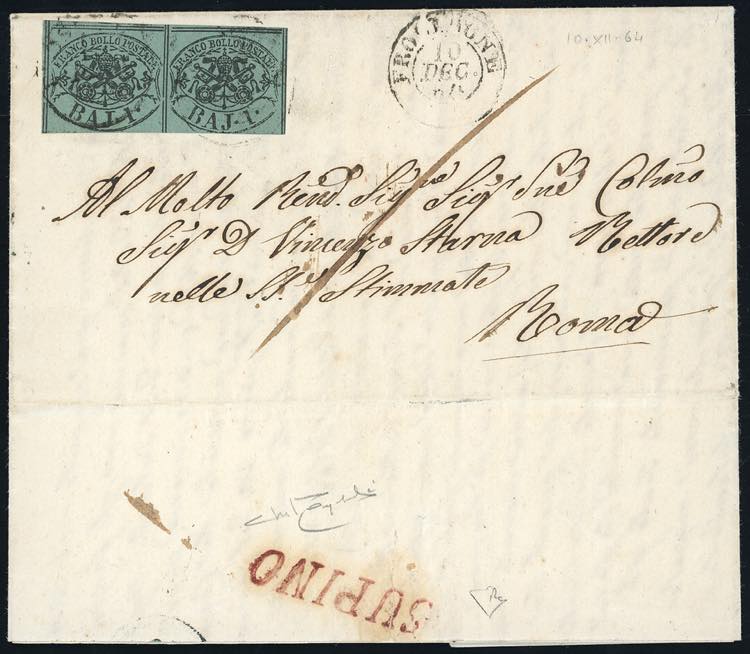 FRANCO BOLLO POSTALE FRANCO BOLLO POSTALE
BAJ. 1. BAJ. 1.
FROSINONE
10
DEC.
64
10·XII·64
Al Molto Rend. Sigr. Sigr
Sigr D Vincenzo Starna Rettore
nelle SS.e Stimmate
Roma
SUPINO